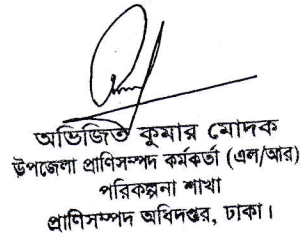 অভিজিত কুমার মোদক
উপজেলা প্রাণিসম্পদ কর্মকর্তা (এল/আর)
পরিকল্পনা শাখা
প্রাণিসম্পদ অধিদপ্তর, ঢাকা।